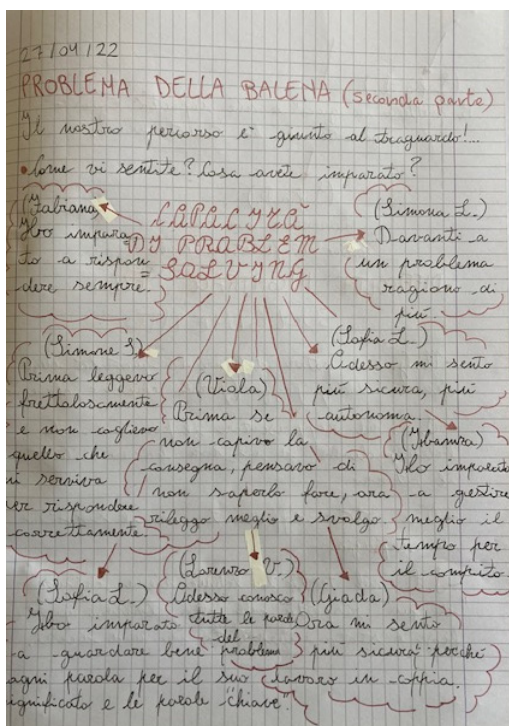 27/04/22
PROBLEMA DELLA BALENA (seconda parte)
Il nostro percorso è giunto al traguardo!...
• Come vi sentite? Cosa avete imparato?
CAPACITÀ
DI PROBLEM
SOLVING
(Fabiana)
Ho impara
to a rispon
dere sempre.
(Simona L.)
Davanti a
un problema
ragiono di
più.
(Simone S.)
Prima leggevo
frettolosamente
e non coglievo
quello che
mi serviva
per rispondere
correttamente.
(Viola)
Prima se
non capivo la
consegna, pensavo di
non saperlo fare, ora
rileggo meglio e svolgo.
(Sofia L.)
Adesso mi sento
più sicura, più
autonoma.
(Hamza)
Ho imparato
a gestire
meglio il
tempo per
il compito.
(Sofia L.)
Ho imparato
a guardare bene
ogni parola per il suo
significato e le parole "chiave".
(Lorenzo V.)
Adesso conosco
tutte le parole
del
problema
(Giada)
Ora mi sento
più sicura perché
lavoro in coppia.